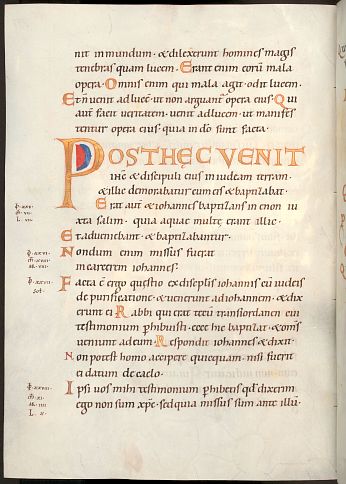 nit inmundum · & dilexerunt homines magis
tenebras quam lucem. Erant enim eorū mala
opera. Omnis enim qui mala agit · odit lucem.
Et n̄ venit adlucē · ut non arguant̄ opera eius. Qui
aut̄ facit veritatem · venit adlucem · ut manifes
tentur opera eius · quia in dō sunt facta.
POSTHĘC VENIT
ih̄c & discipuli eius iniudeam terram.
& illic demorabatur cum eis & baptizabat.
Erat aut̄ & iohannes baptizans in enon iu
xta salim · quia aquae multę erant illic.
Et adueniebant · & baptizabantur.
Nondum enim missus fuerat
incarcerem iohannes.
Facta ē ergo questio ex discipulis iohannis cū iudeis
de purificatione · & uenerunt adiohannem · & dix
erunt ei Rabbi qui erat tecū transiordanen cui
testimonium phibuisti · ecce hic baptizat · & om̄s
veniunt adeum. Respondit iohannes & dixit.
Non potest homo accipere quicquam · nisi fuerit
ei datum de caelo.
Ipsi uos mihi testimonium phibetis qd dixerim
ego non sum xp̄c · sed quia missus sum ante illū.